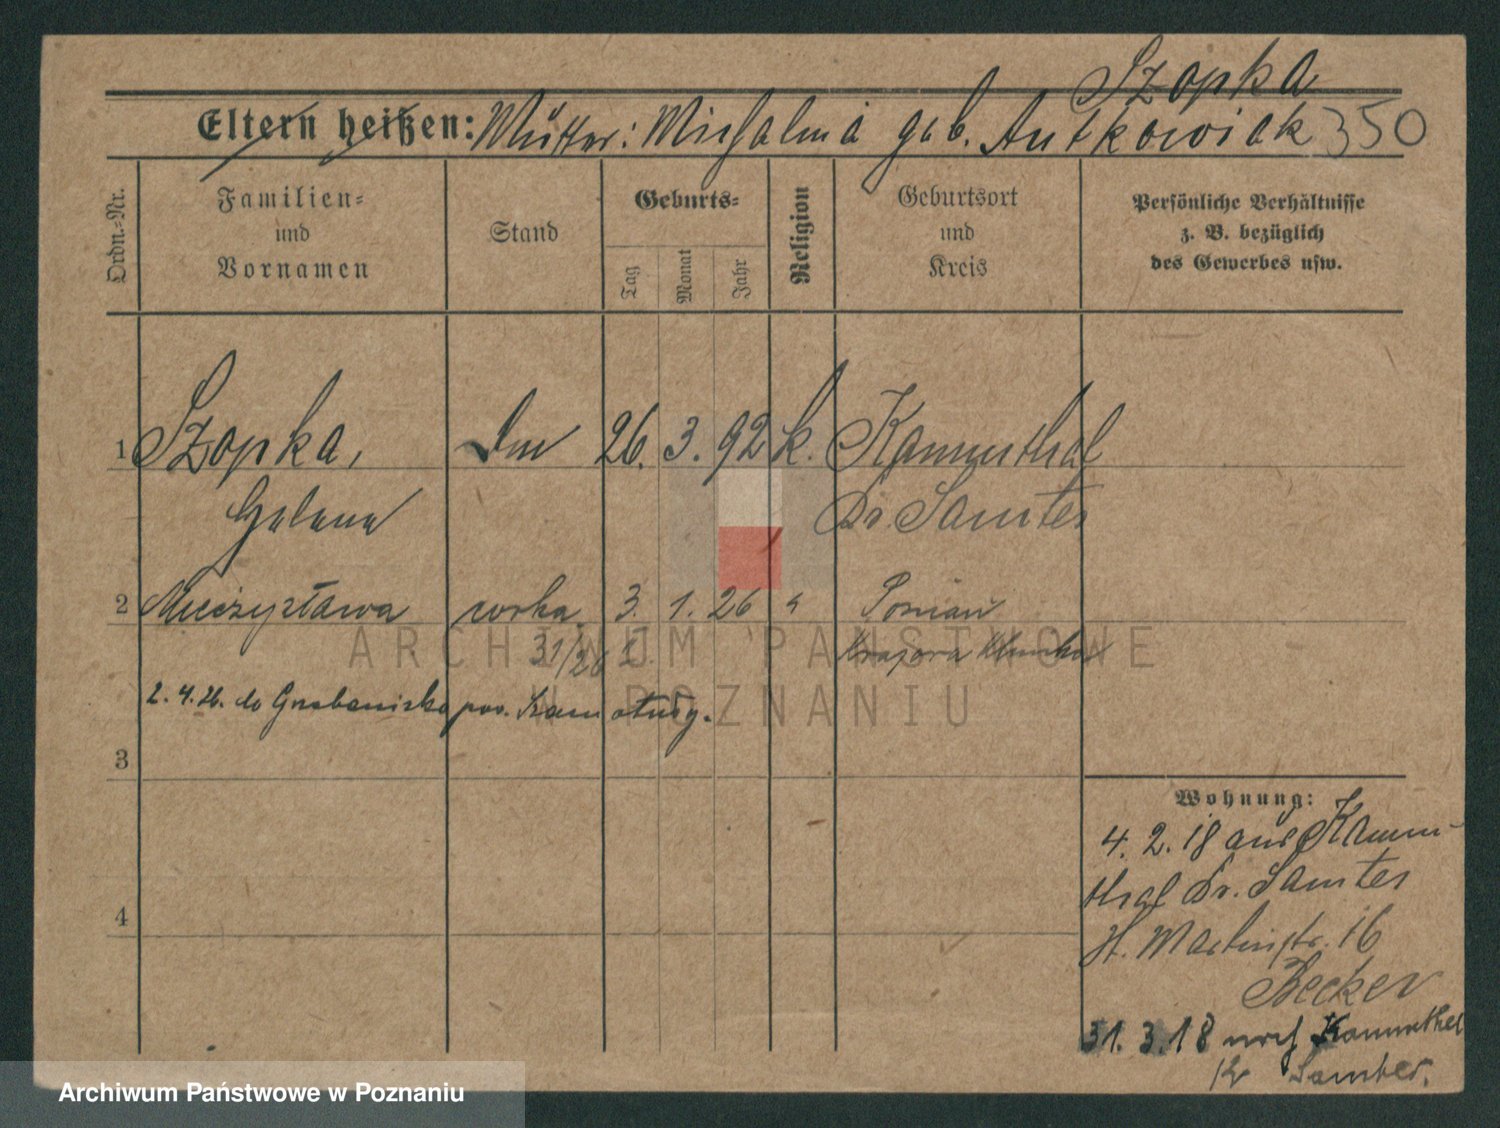 Szopka
Eltern heißen: Mutter: Michalina geb. Antkowiak 350
Ordn.-Nr.
Familien-
und
Vornamen
Stand
Geburts-
Tag
Monat
Jahr
Religion
Geburtsort
und
Kreis
Persönliche Verhältnisse
z. B. bezüglich
des Gewerbes usw.
1 Szopka, 26. 3. 92 k. Kammthal
Helena Kr. Samter
2 Mieczysława corka 3. 1. 26 " Poznań
31/
2. 4. 26. do pow. Szamotuły.
3
4
Wohnung:
4. 2. 18 aus Kamm-
thal Kr. Samter
St. Martinstr. 16
Becker
31. 3. 18 nach Kammthal
Kr Samter.
ARCHIWUM PAŃSTWOWE
W POZNANIU
Archiwum Państwowe w Poznaniu